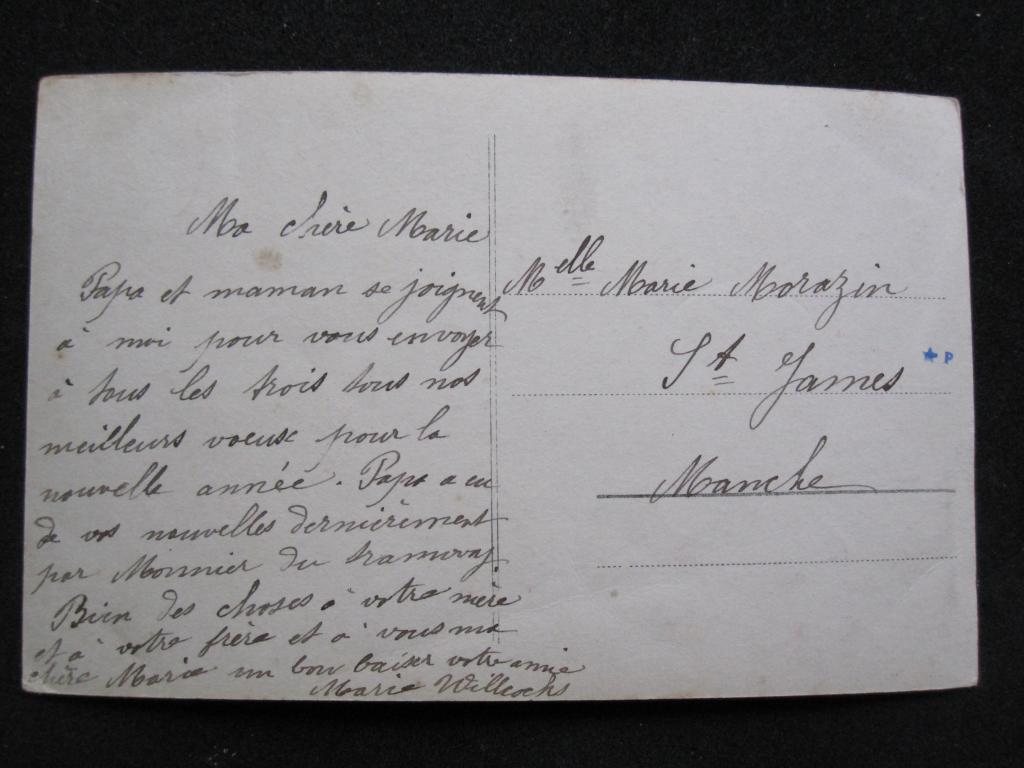 Ma chère Marie
Papa et maman se joignent
à moi pour vous envoyer
à tous les trois tous nos
meilleurs voeux pour la
nouvelle année. Papa a eu
de vos nouvelles dernièrement
par Monnier du tramway.
Bien des choses à votre mère
et à votre frère et à vous ma
chère Marie un bon baiser votre amie
Marie
Melle Marie Morazin
St James
P
Manche